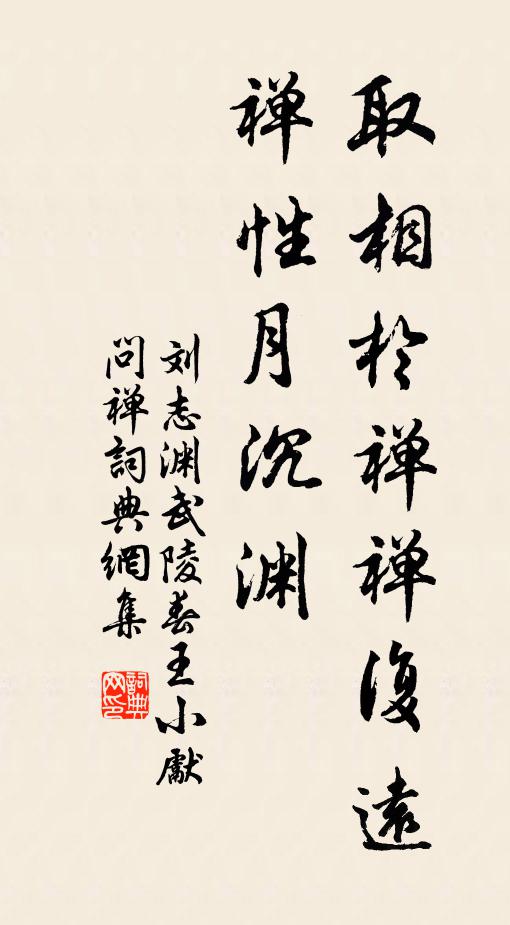 取相於禅禅復遠
禅性月沉渊
刘志渊武陵春王小獻
问禅詞典網集
詞典
网印